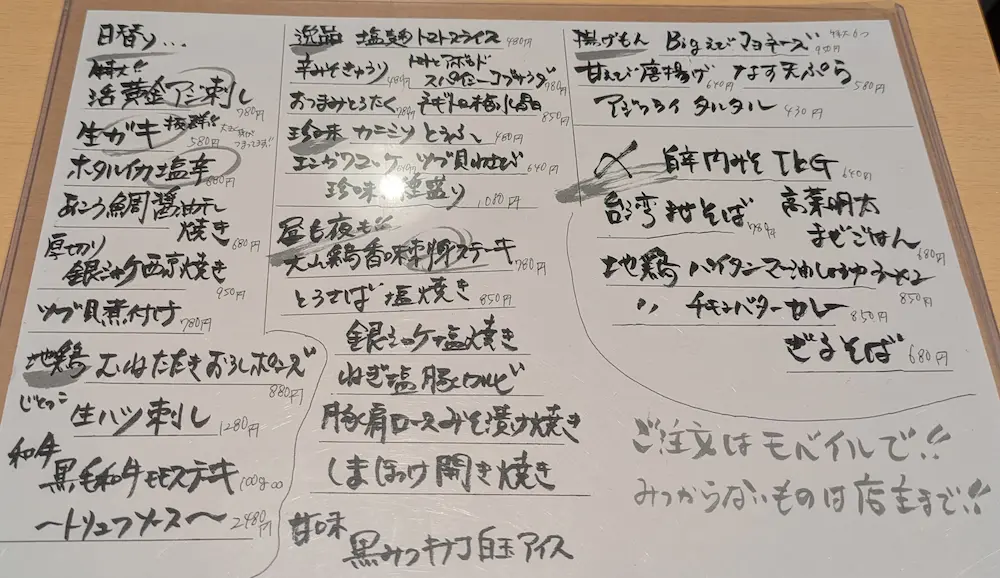 日替り…
特大!!
活 黄金アジ刺し 780円
生ガキ 抜群!! 580円
ホタルイカ塩辛 680円
あこう鯛 醤油干し
焼き 680円
厚切り
銀シャケ西京焼き 950円
ツブ貝煮付け 780円
地鶏 むねたたき おろしポンズ 880円
じとっこ
生ハツ刺し 1280円
和牛
黒毛和牛モモステーキ 100g
〜トリュフソース〜 2480円
逸品 塩麹トマトスライス 480円
辛みそきゅうり 480円
トマトとアボカド
スパイシーコブサラダ 780円
おつまみとろたく 780円
ネギトロ梅水晶 850円
珍味 カニミソとうふ 480円
エンガワユッケ ツブ貝わさび 640円
珍味 盛り 1080円
昼も夜も!!
大山鶏香味 ステーキ 780円
とろさば 塩焼き 850円
銀シャケ塩焼き
ねぎ塩豚カルビ
豚肩ロースみそ漬け焼き
しまほっけ開き焼き
甘味
黒みつきなこ白玉アイス
揚げもん Bigえびマヨネーズ 950円
甘えび唐揚げ 640円 なす天ぷら 580円
アジフライ タルタル 430円
〆 自家 肉みそTKG 640円
台湾まぜそば 780円
高菜明太
まぜごはん 680円
地鶏 パイタンマー油しょうゆらーめん 850円
〃 チキンバターカレー 850円
ざるそば 680円
ご注文はモバイルで!!
みつからないものは店主まで!!